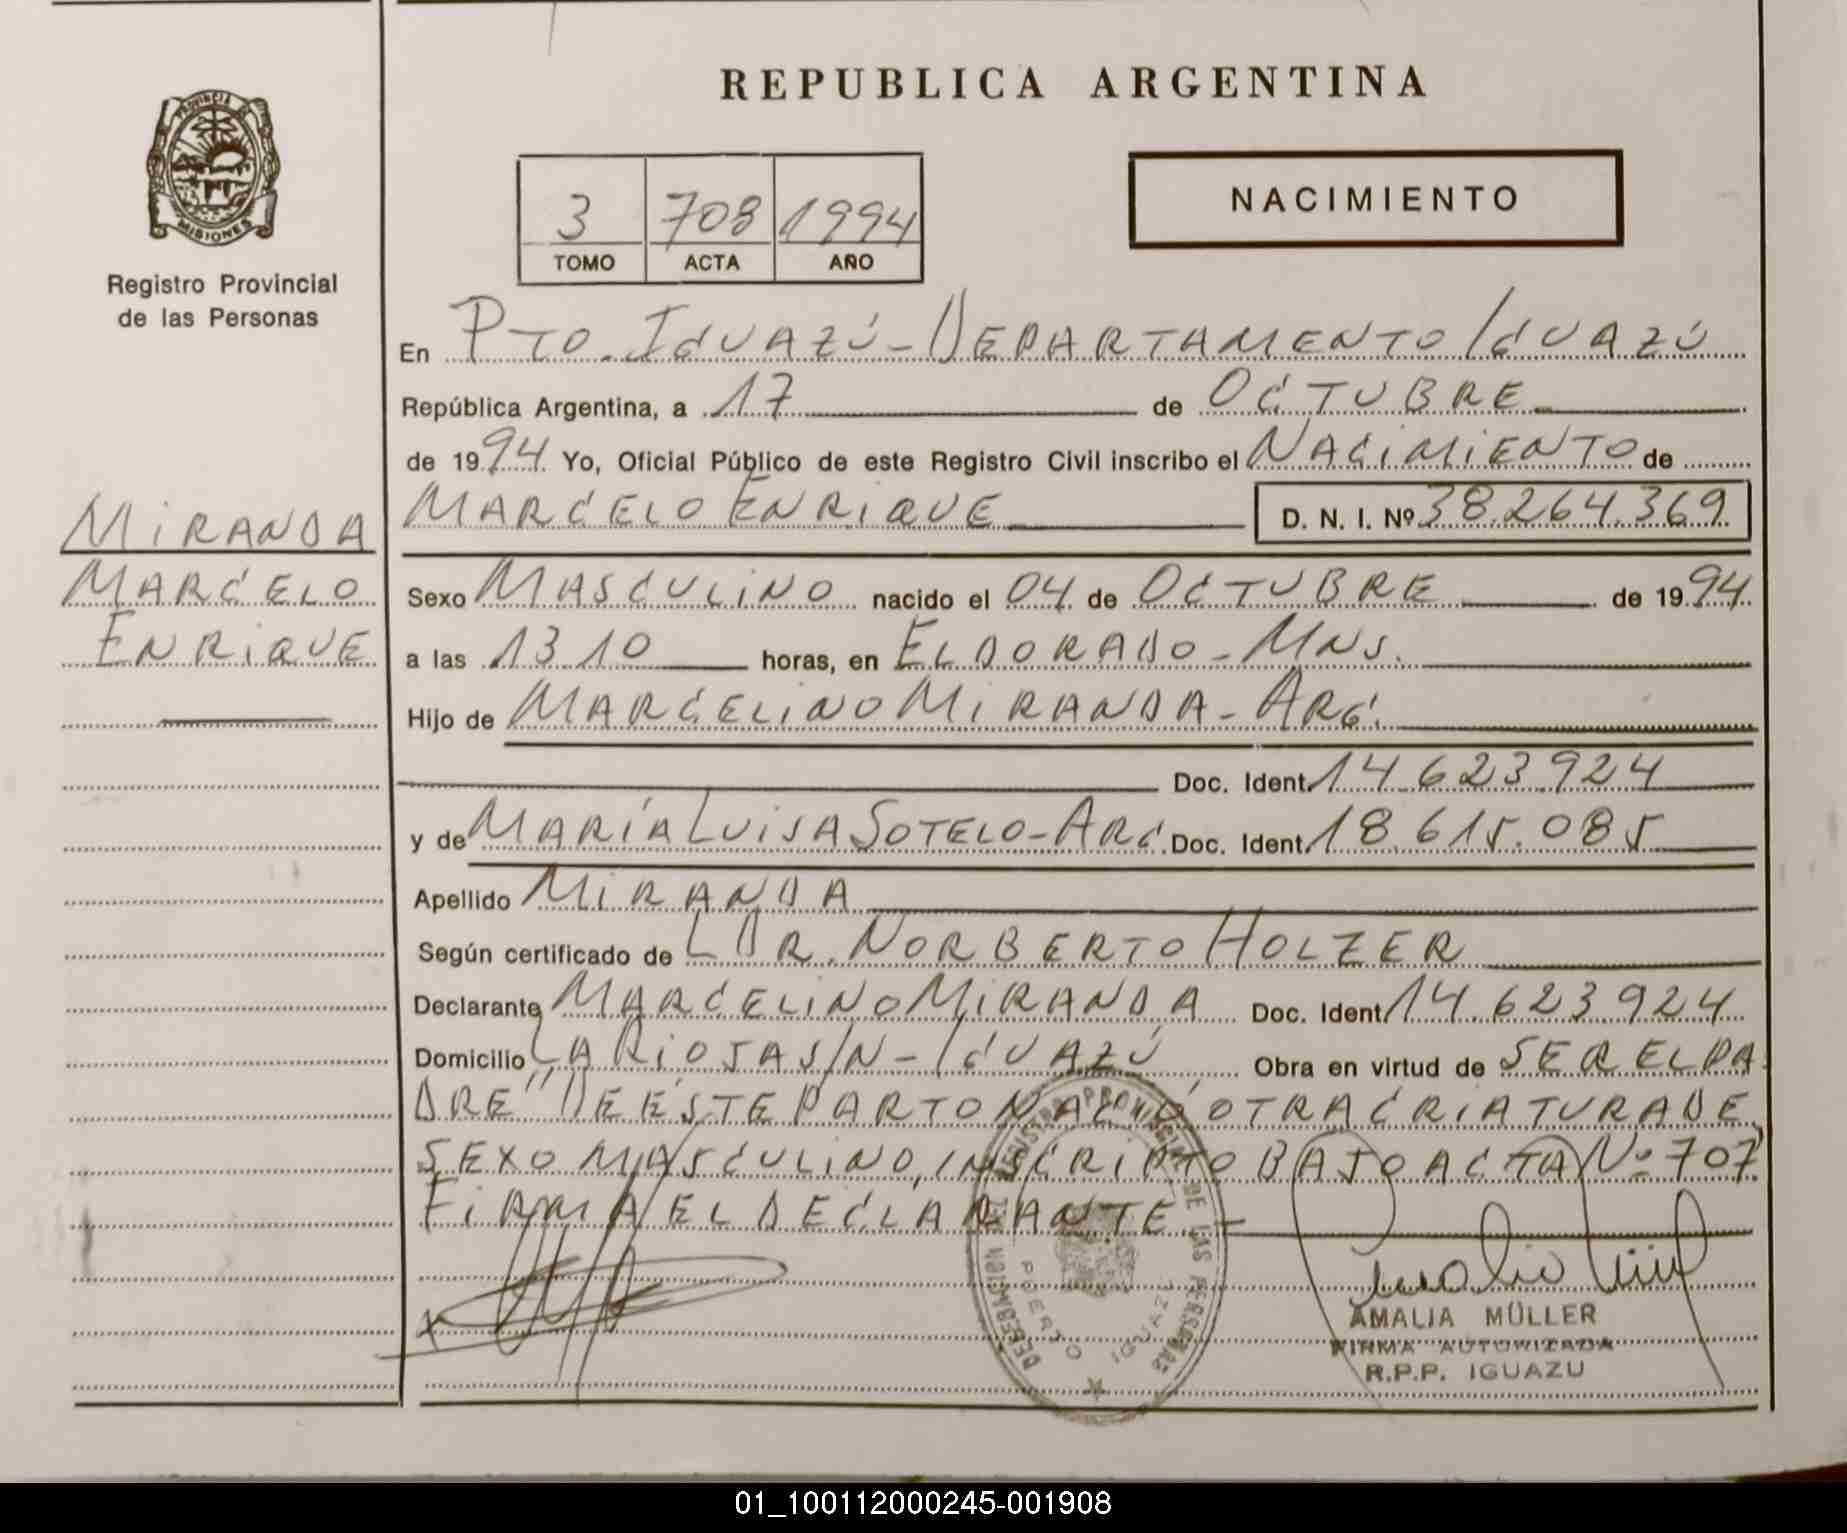 REPUBLICA ARGENTINA
PROVINCIA DE
MISIONES
Registro Provincial
de las Personas
NACIMIENTO
3 708 1994
TOMO ACTA AÑO
En PTO. IGUAZÚ - DEPARTAMENTO IGUAZÚ
República Argentina, a 17 de OCTUBRE
de 1994 Yo, Oficial Público de este Registro Civil inscribo el NACIMIENTO de
MARCELO ENRIQUE D. N. I. Nº 38.264.369
MIRANDA
MARCELO
ENRIQUE
Sexo MASCULINO nacido el 04 de OCTUBRE de 1994
a las 13 10 horas, en ELDORADO - MNS.
Hijo de MARCELINO MIRANDA - ARG.
Doc. Ident. 14.623.924
y de MARÍA LUISA SOTELO - ARG. Doc. Ident. 18.615.085
Apellido MIRANDA
Según certificado de DR. NORBERTO HOLZER
Declarante MARCELINO MIRANDA Doc. Ident. 14.623.924
Domicilio LA RIOJA S/N - IGUAZÚ Obra en virtud de SER EL PA
DRE" DE ESTE PARTO NACIÓ OTRA CRIATURA DE
SEXO MASCULINO, INSCRIPTO BAJO ACTA Nº 707
FIRMA EL DECLARANTE
DELEGACION DEL REGISTRO PROVINCIAL DE LAS PERSONAS
PUERTO IGUAZU
AMALIA MÜLLER
FIRMA AUTORIZADA
R.P.P. IGUAZU
01_100112000245-001908